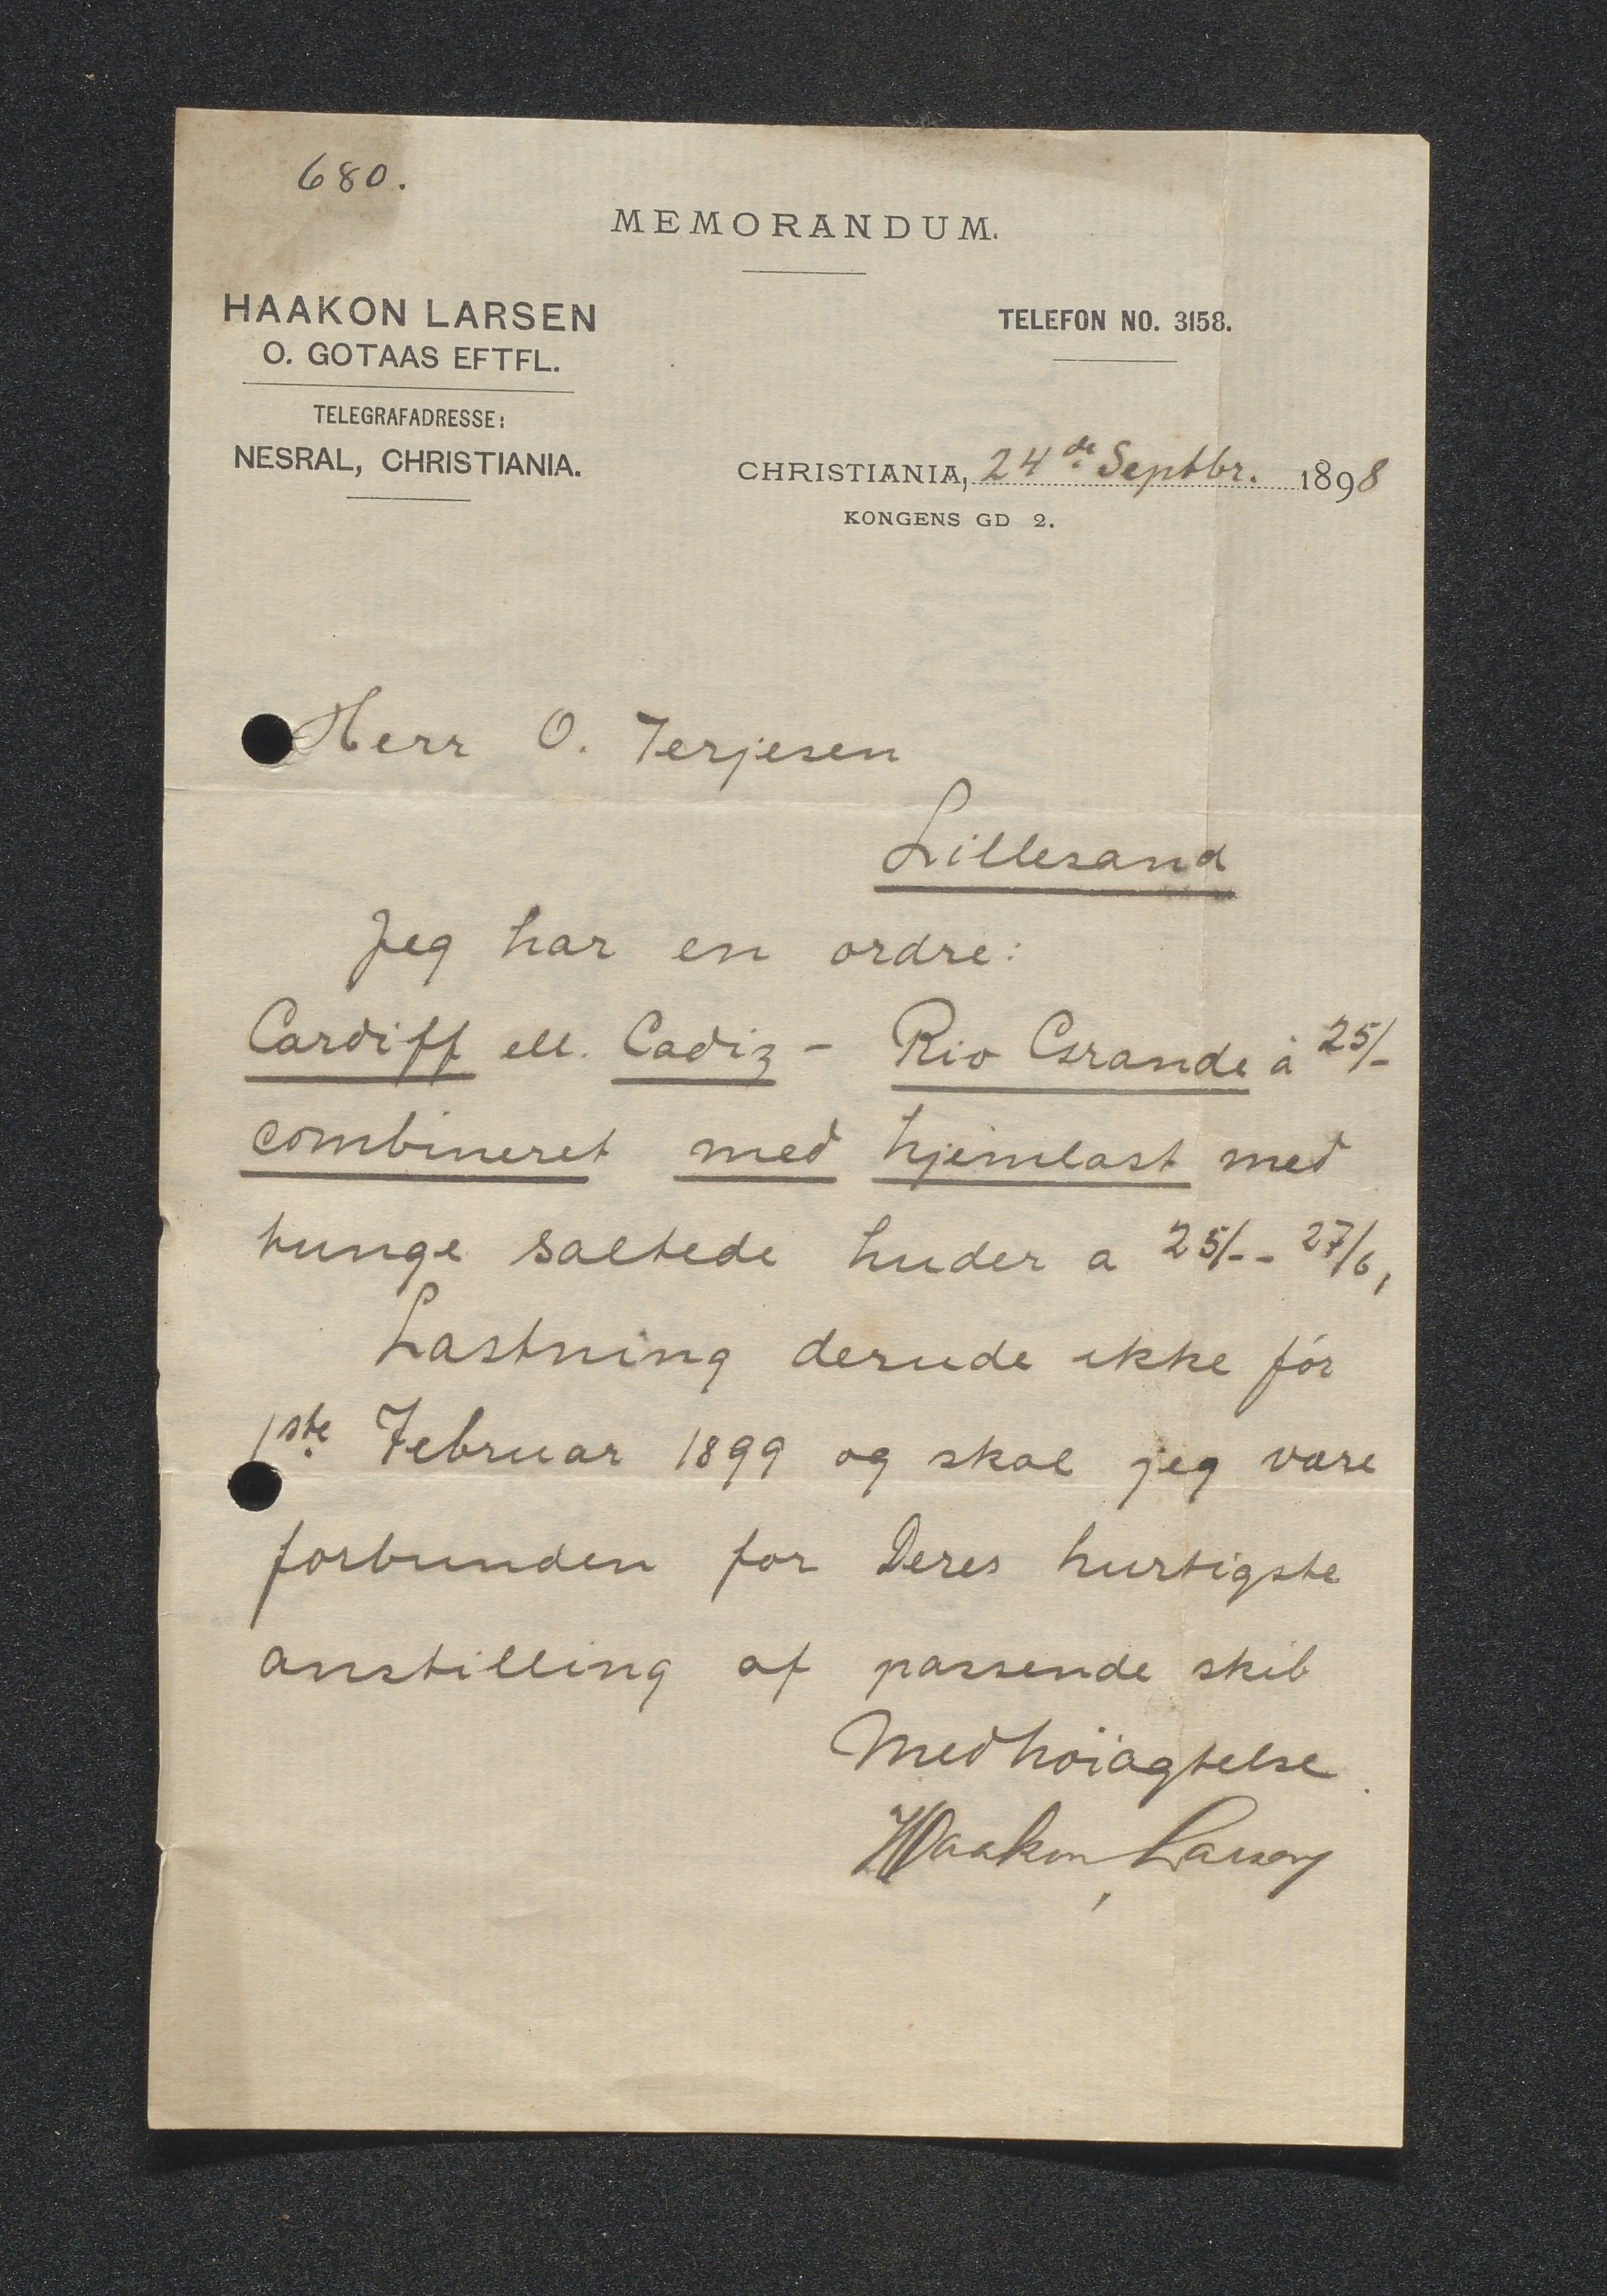 680.
MEMORANDUM.
HAAKON LARSEN
O. GOTAAS EFTFL.
TELEGRAFADRESSE:
NESRAL, CHRISTIANIA.
TELEFON NO. 3158.
CHRISTIANIA, 24de Septbr. 1898
KONGENS GD 2.
Herr O. Terjesen
Lillesand
Jeg har en ordre:
Cardiff ell. Cadiz - Rio Grande à 25/-
combineret med hjemlast med
tunge saltede huder a 25/- - 27/6,
Lastning derude ikke før
1ste Februar 1899 og skal jeg være
forbunden for Deres hurtigste
anstilling af passende skib
Med høiagtelse
Haakon Larsen